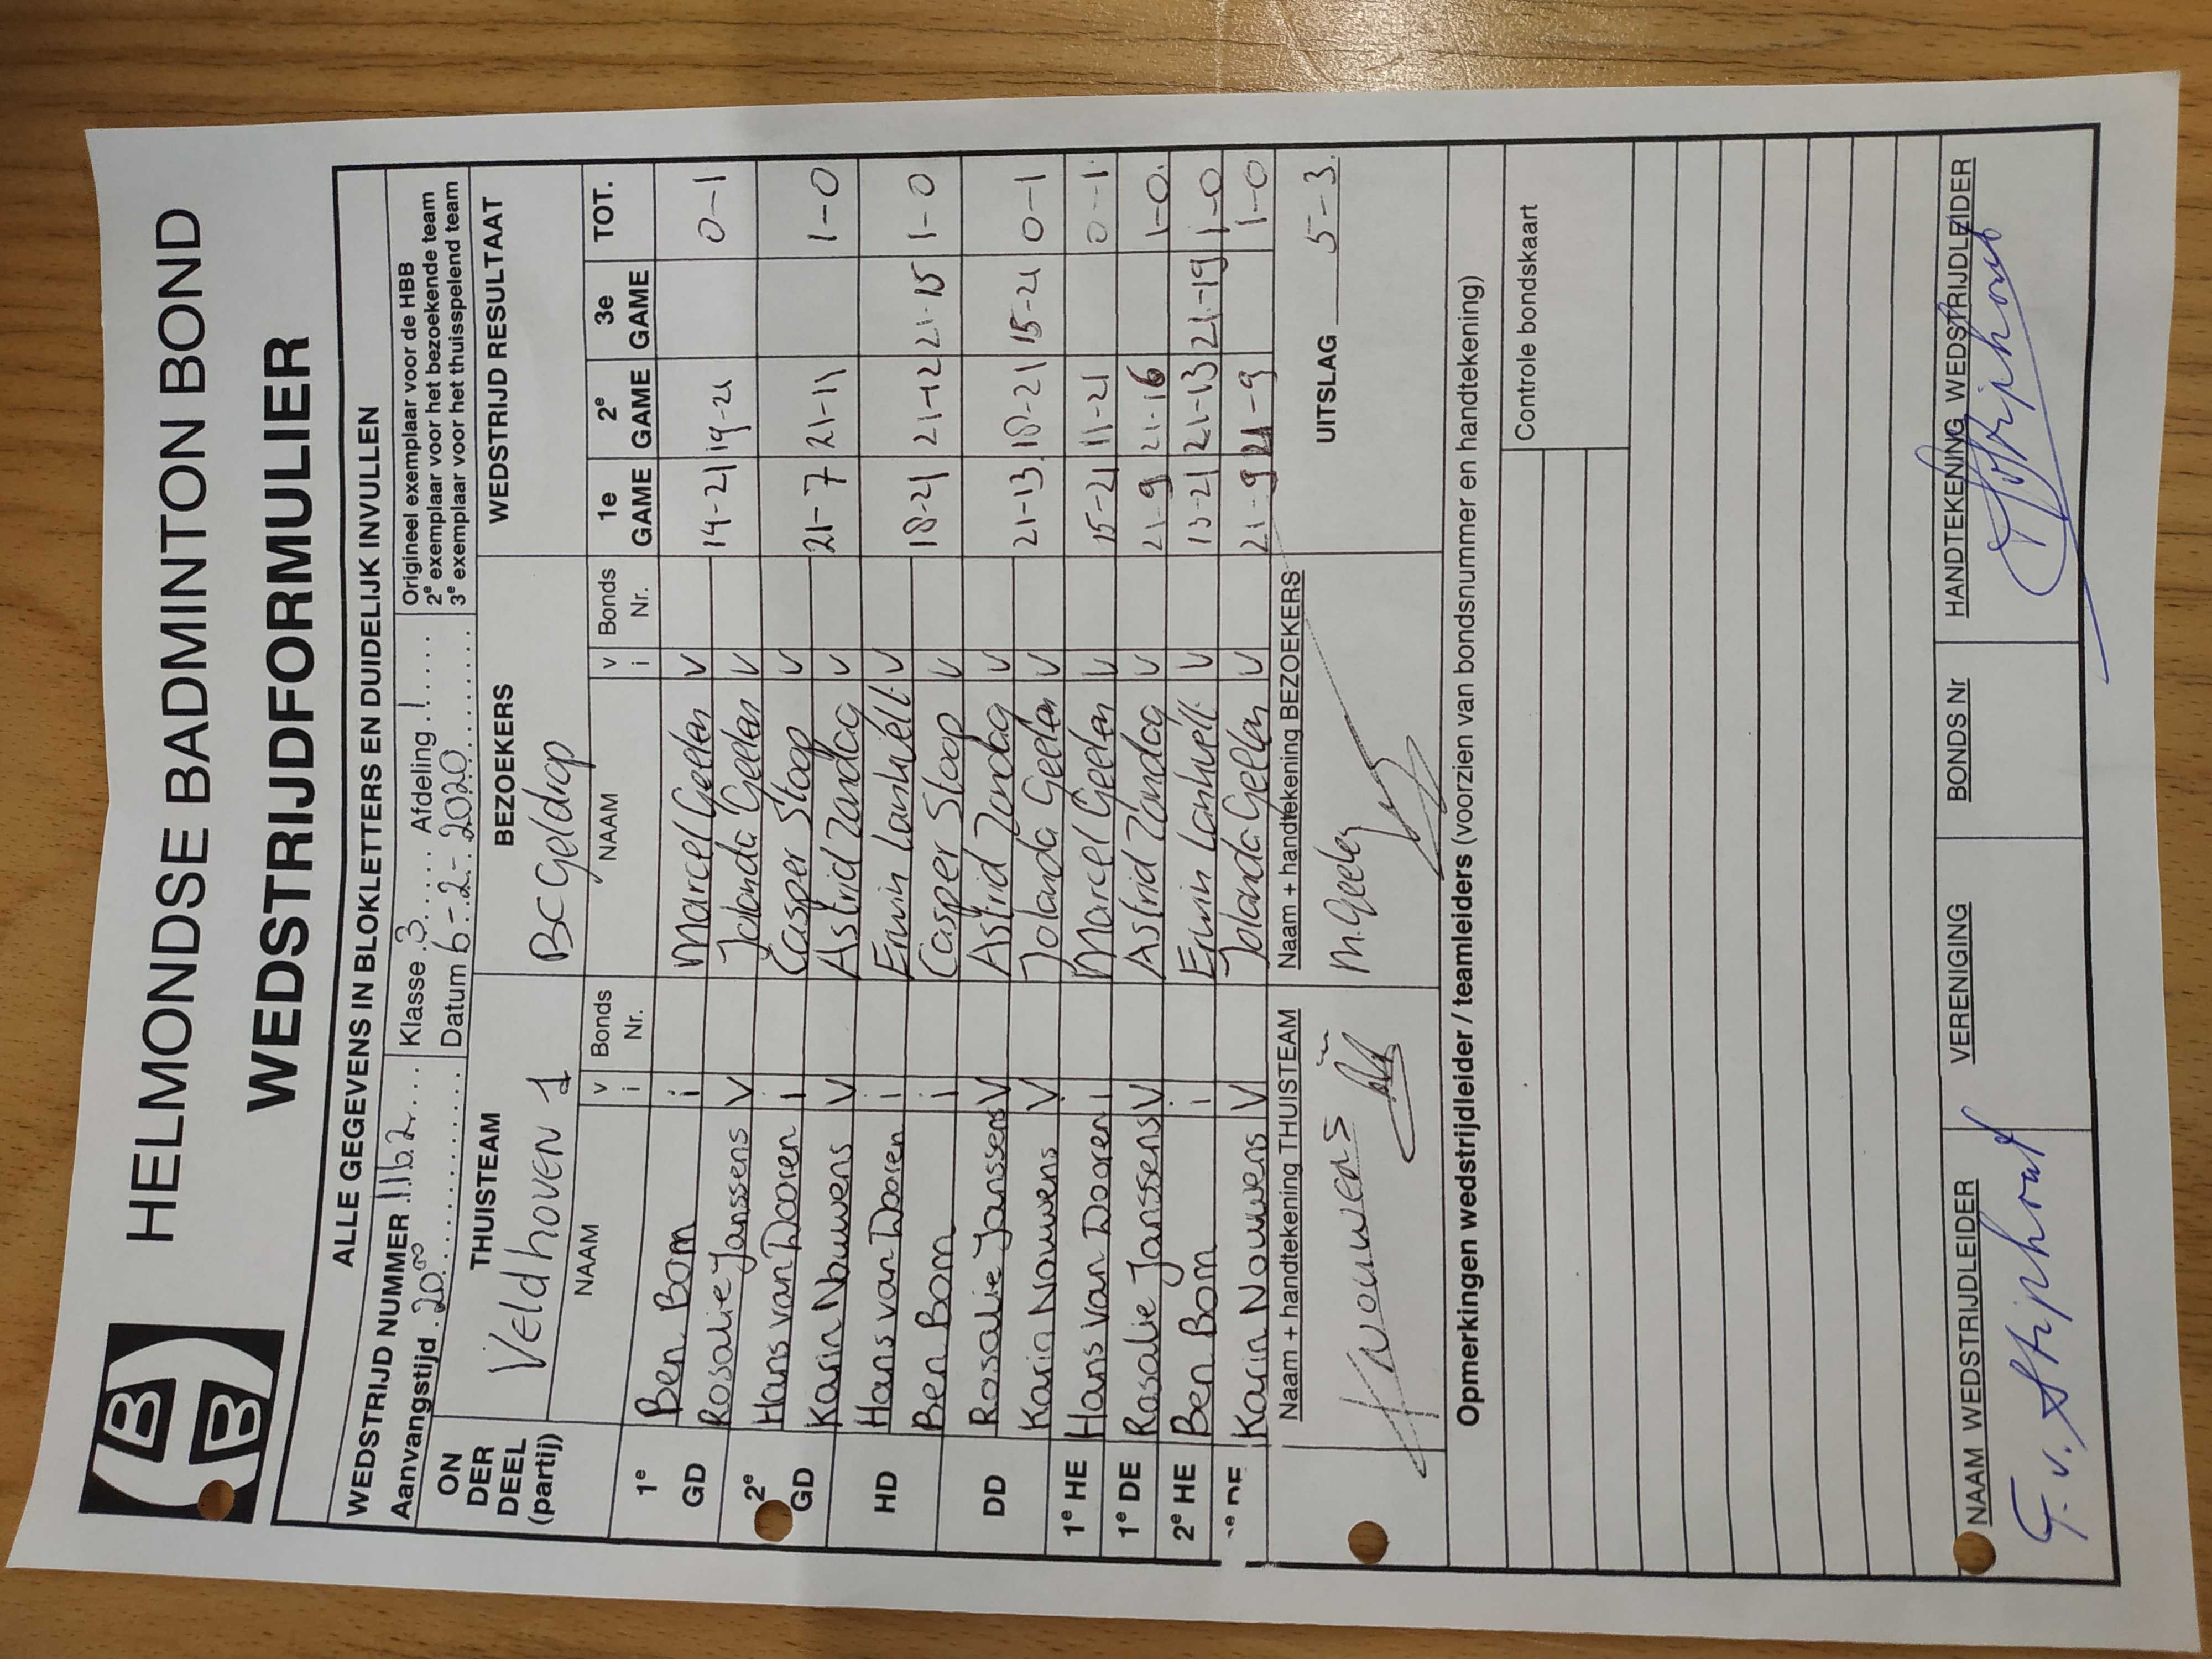 HBB
HELMONDSE BADMINTON BOND
WEDSTRIJDFORMULIER
ALLE GEGEVENS IN BLOKLETTERS EN DUIDELIJK INVULLEN
WEDSTRIJD NUMMER 11b2 Klasse 3 Afdeling 1
Aanvangstijd 20.00 Datum 6-2-2020
Origineel exemplaar voor de HBB
2e exemplaar voor het bezoekende team
3e exemplaar voor het thuisspelend team
ON DER DEEL (partij) THUISTEAM BEZOEKERS WEDSTRIJD RESULTAAT
Veldhoven 1 BC Geldrop
NAAM v i Bonds Nr. NAAM v i Bonds Nr. 1e GAME 2e GAME 3e GAME TOT.
1e GD Ben Bom i Marcel Geelen V
Rosalie Janssens V Jolanda Geelen V 14-21 19-21 0-1
2e GD Hans van Dooren i Casper Stoop V
Karin Nouwens V Astrid Zandag V 21-7 21-11 1-0
HD Hans van Dooren i Erwin V
Ben Bom i Casper Stoop V 18-21 21-12 21-15 1-0
DD Rosalie Janssens V Astrid Zandag V
Karin Nouwens V Jolanda Geelen V 21-13 18-21 15-21 0-1
1e HE Hans van Dooren i Marcel Geelen V 15-21 11-21 0-1
1e DE Rosalie Janssens V Astrid Zandag V 21-9 21-16 1-0
2e HE Ben Bom i Erwin V 13-21 21-13 21-19 1-0
2e DE Karin Nouwens V Jolanda Geelen V 21-9 21-9 1-0
Naam + handtekening THUISTEAM Naam + handtekening BEZOEKERS UITSLAG 5-3
Nouwens M. Geelen
Opmerkingen wedstrijdleider / teamleiders (voorzien van bondsnummer en handtekening)
Controle bondskaart
NAAM WEDSTRIJDLEIDER VERENIGING BONDS Nr HANDTEKENING WEDSTRIJDLEIDER
T. v. Stiphout